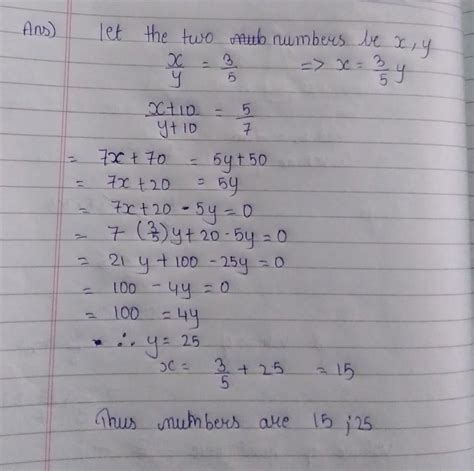 Ans) let the two numbers be x, y
x/y = 3/5 => x = 3/5 y
x+10/y+10 = 5/7
= 7x + 70 = 5y + 50
= 7x + 20 = 5y
= 7x + 20 - 5y = 0
= 7 (3/5) y + 20 - 5y = 0
= 21 y + 100 - 25y = 0
= 100 - 4y = 0
= 100 = 4y
∴ y = 25
x = 3/5 + 25 = 15
Thus numbers are 15 ; 25